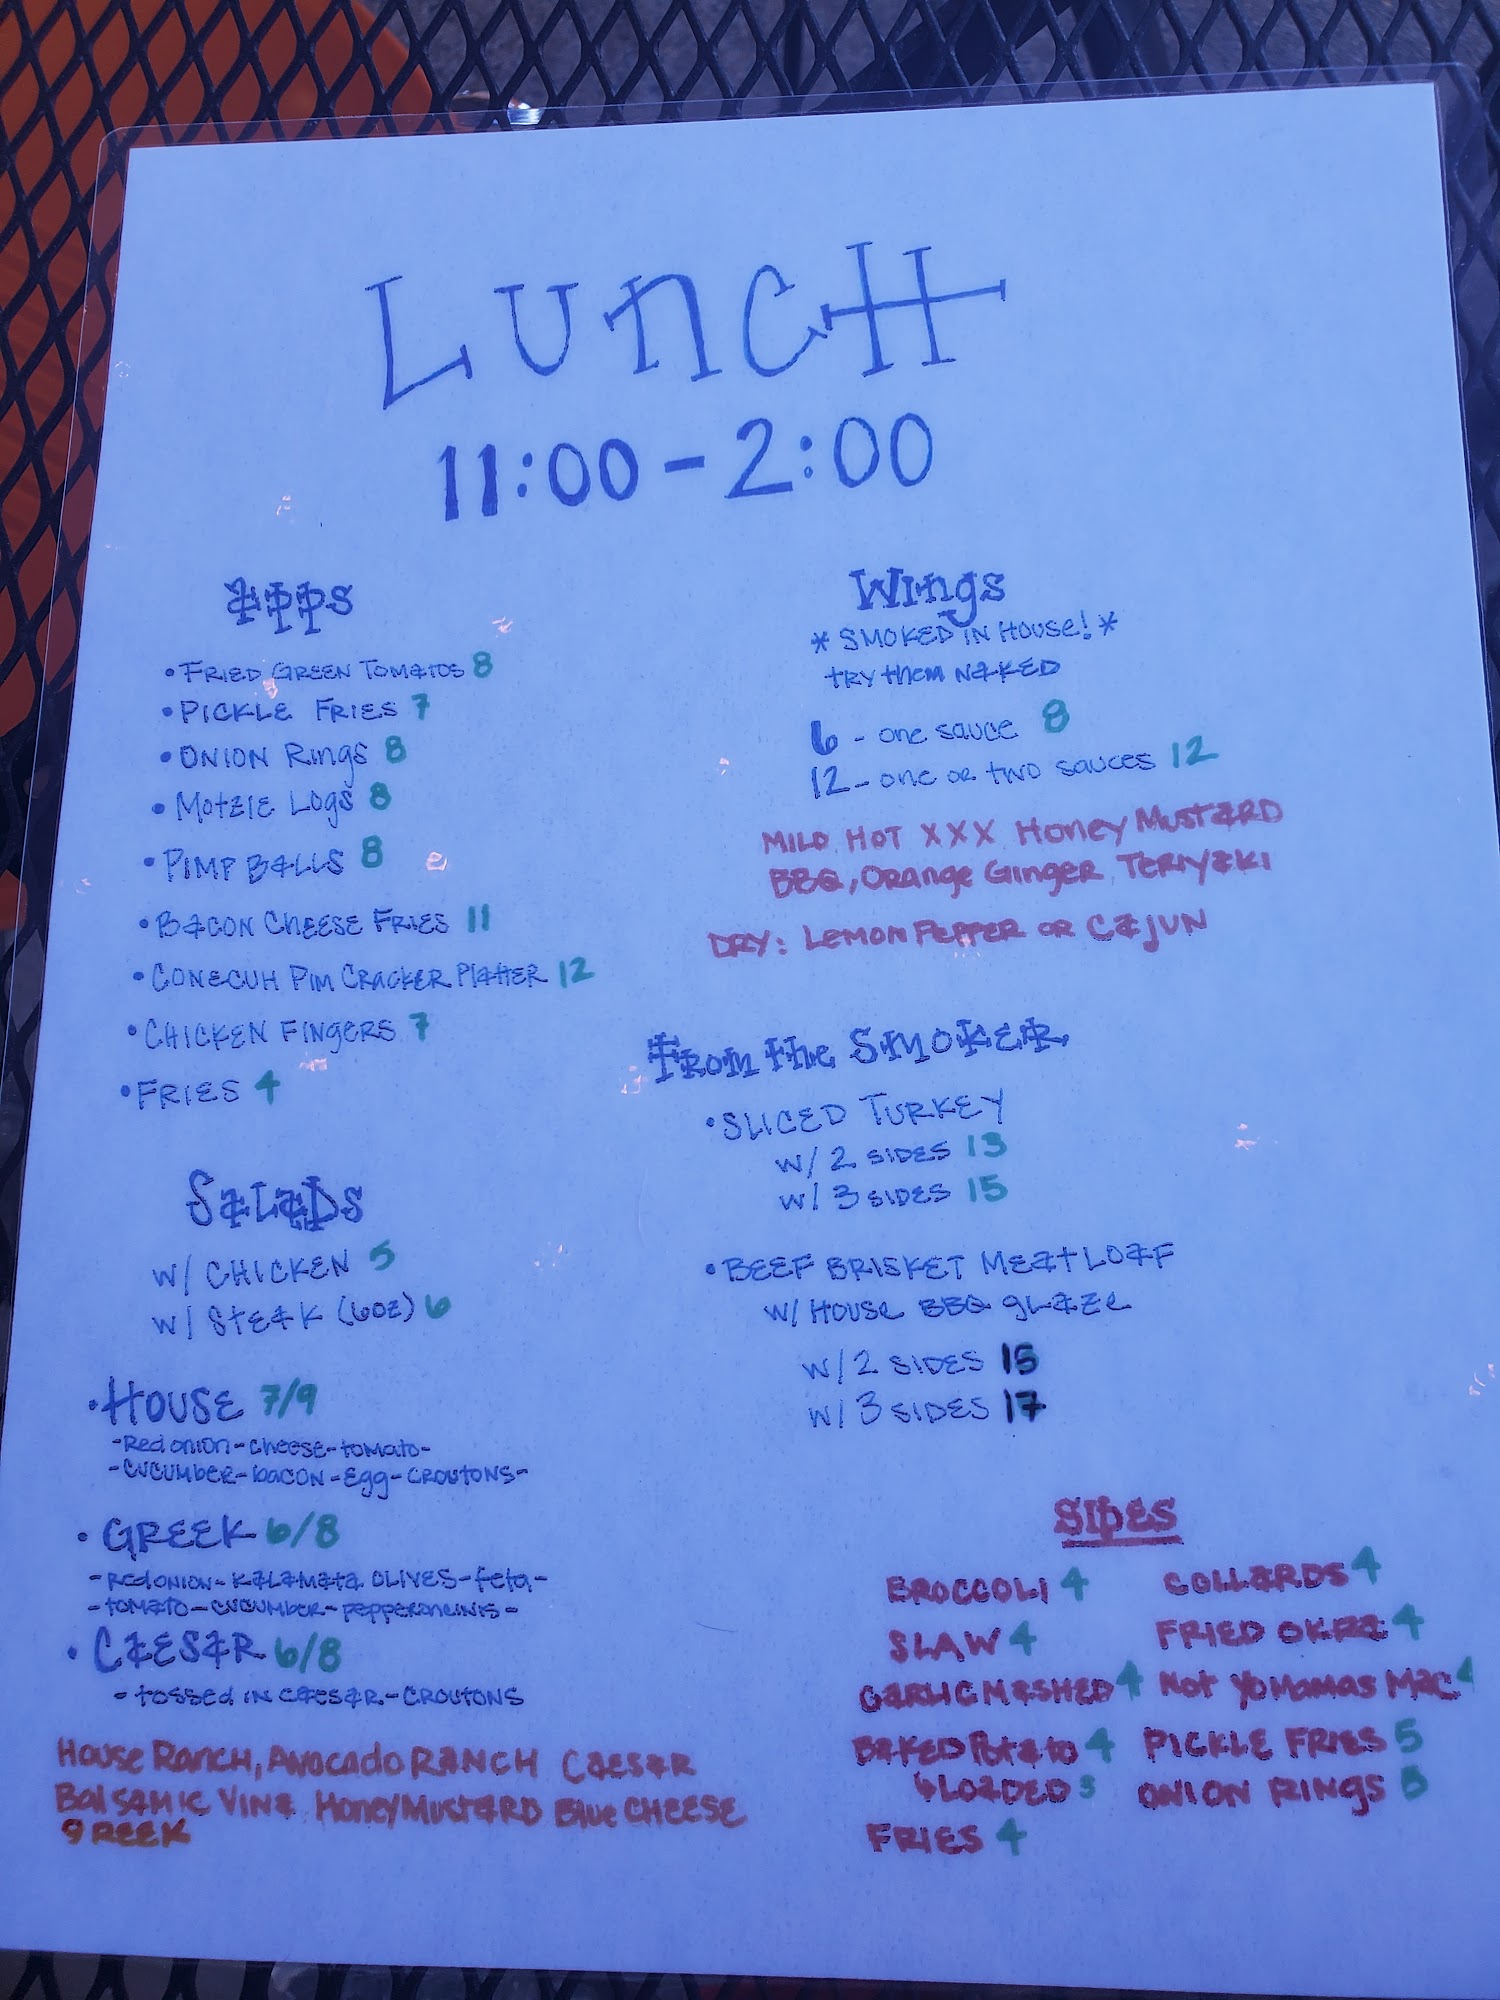 LuncH
11:00-2:00
Apps
•FRIED GREEN TOMATOS 8
•PICKLE FRIES 7
•ONION Rings 8
•Motzie Logs 8
•PIMP BALLS 8
•BACON CHEESE FRIES 11
•CONECUH PIM CRACKER PLATTER 12
•CHICKEN FINGERS 7
•FRIES 4
SALADS
W/ CHICKEN 5
W/ STEAK (6oz) 6
•HOUSE 7/9
-Red onion-cheese-tomato-
-CUCUMBER-bacon-Egg-CROUTONS-
•GREEK 6/8
-Red ONION-KALAMATA OLIVES-feta-
-TOMATO-CUCUMBER-pepperoncinis-
•CAESAR 6/8
-tossed IN CAESAR-CROUTONS
House RANCH, Avocado RANCH CAESAR
BALSAMIC VINA HoneyMustard Blue CHEESE
GREEK
Wings
*SMOKED IN House!*
tRY them NAKED
6 - one sauce 8
12- one or two sauces 12
MILD HOT XXX Honey Mustard
BBQ, Orange Ginger Teriyaki
DRY: Lemon Pepper or CAJUN
FROM the SMOKER
•SLICED TURKEY
W/ 2 SIDES 13
W/ 3 SIDES 15
•BEEF BRISKET MEATLOAF
W/ House BBQ glaze
W/2 SIDES 15
W/3 SIDES 17
SIDES
BROCCOLI 4 COLLARDS 4
SLAW 4 FRIED OKRA 4
GARLIC MASHED 4 Not YoMamas MAC 4
BAKED Potato 4 PICKLE FRIES 5
LOADED 5 ONION RINGS 5
FRIES 4